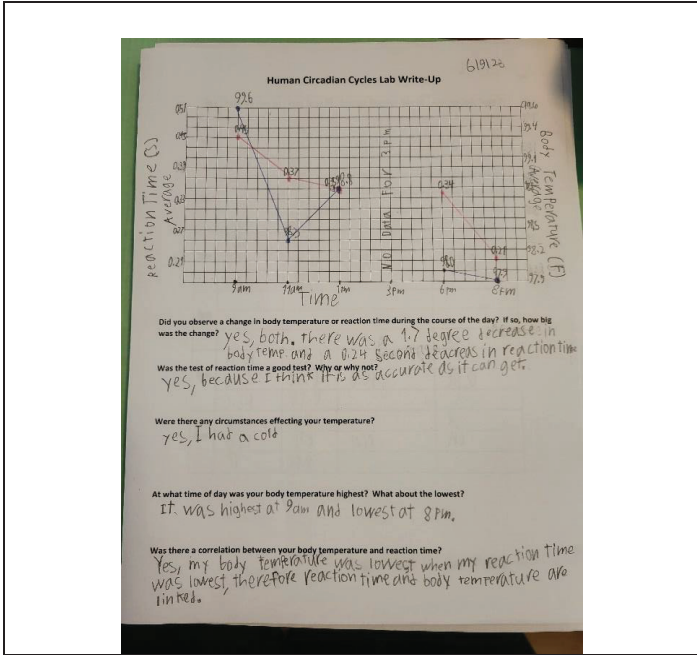 6/9/23
Human Circadian Cycles Lab Write-Up
99.6
0.51
0.45
0.39
0.33
0.27
0.21
Reaction Time (s)
Average
0.37
No Data For 3pm
0.34
99.4
98.2
97.9
Body Temperature (F)
Average
9am
11am
1pm
3pm
6pm
8pm
Time
Did you observe a change in body temperature or reaction time during the course of the day? If so, how big
was the change? yes, both. there was a 1.7 degree decrease in
body temp. and a 0.24 second deacreas in reaction time
Was the test of reaction time a good test? Why or why not?
yes, because I think it is as accurate as it can get.
Were there any circumstances effecting your temperature?
yes, I had a cold
At what time of day was your body temperature highest? What about the lowest?
It was highest at 9am and lowest at 8pm.
Was there a correlation between your body temperature and reaction time?
Yes, my body temperature was lowest when my reaction time
was lowest, therefore reaction time and body temperature are
linked.